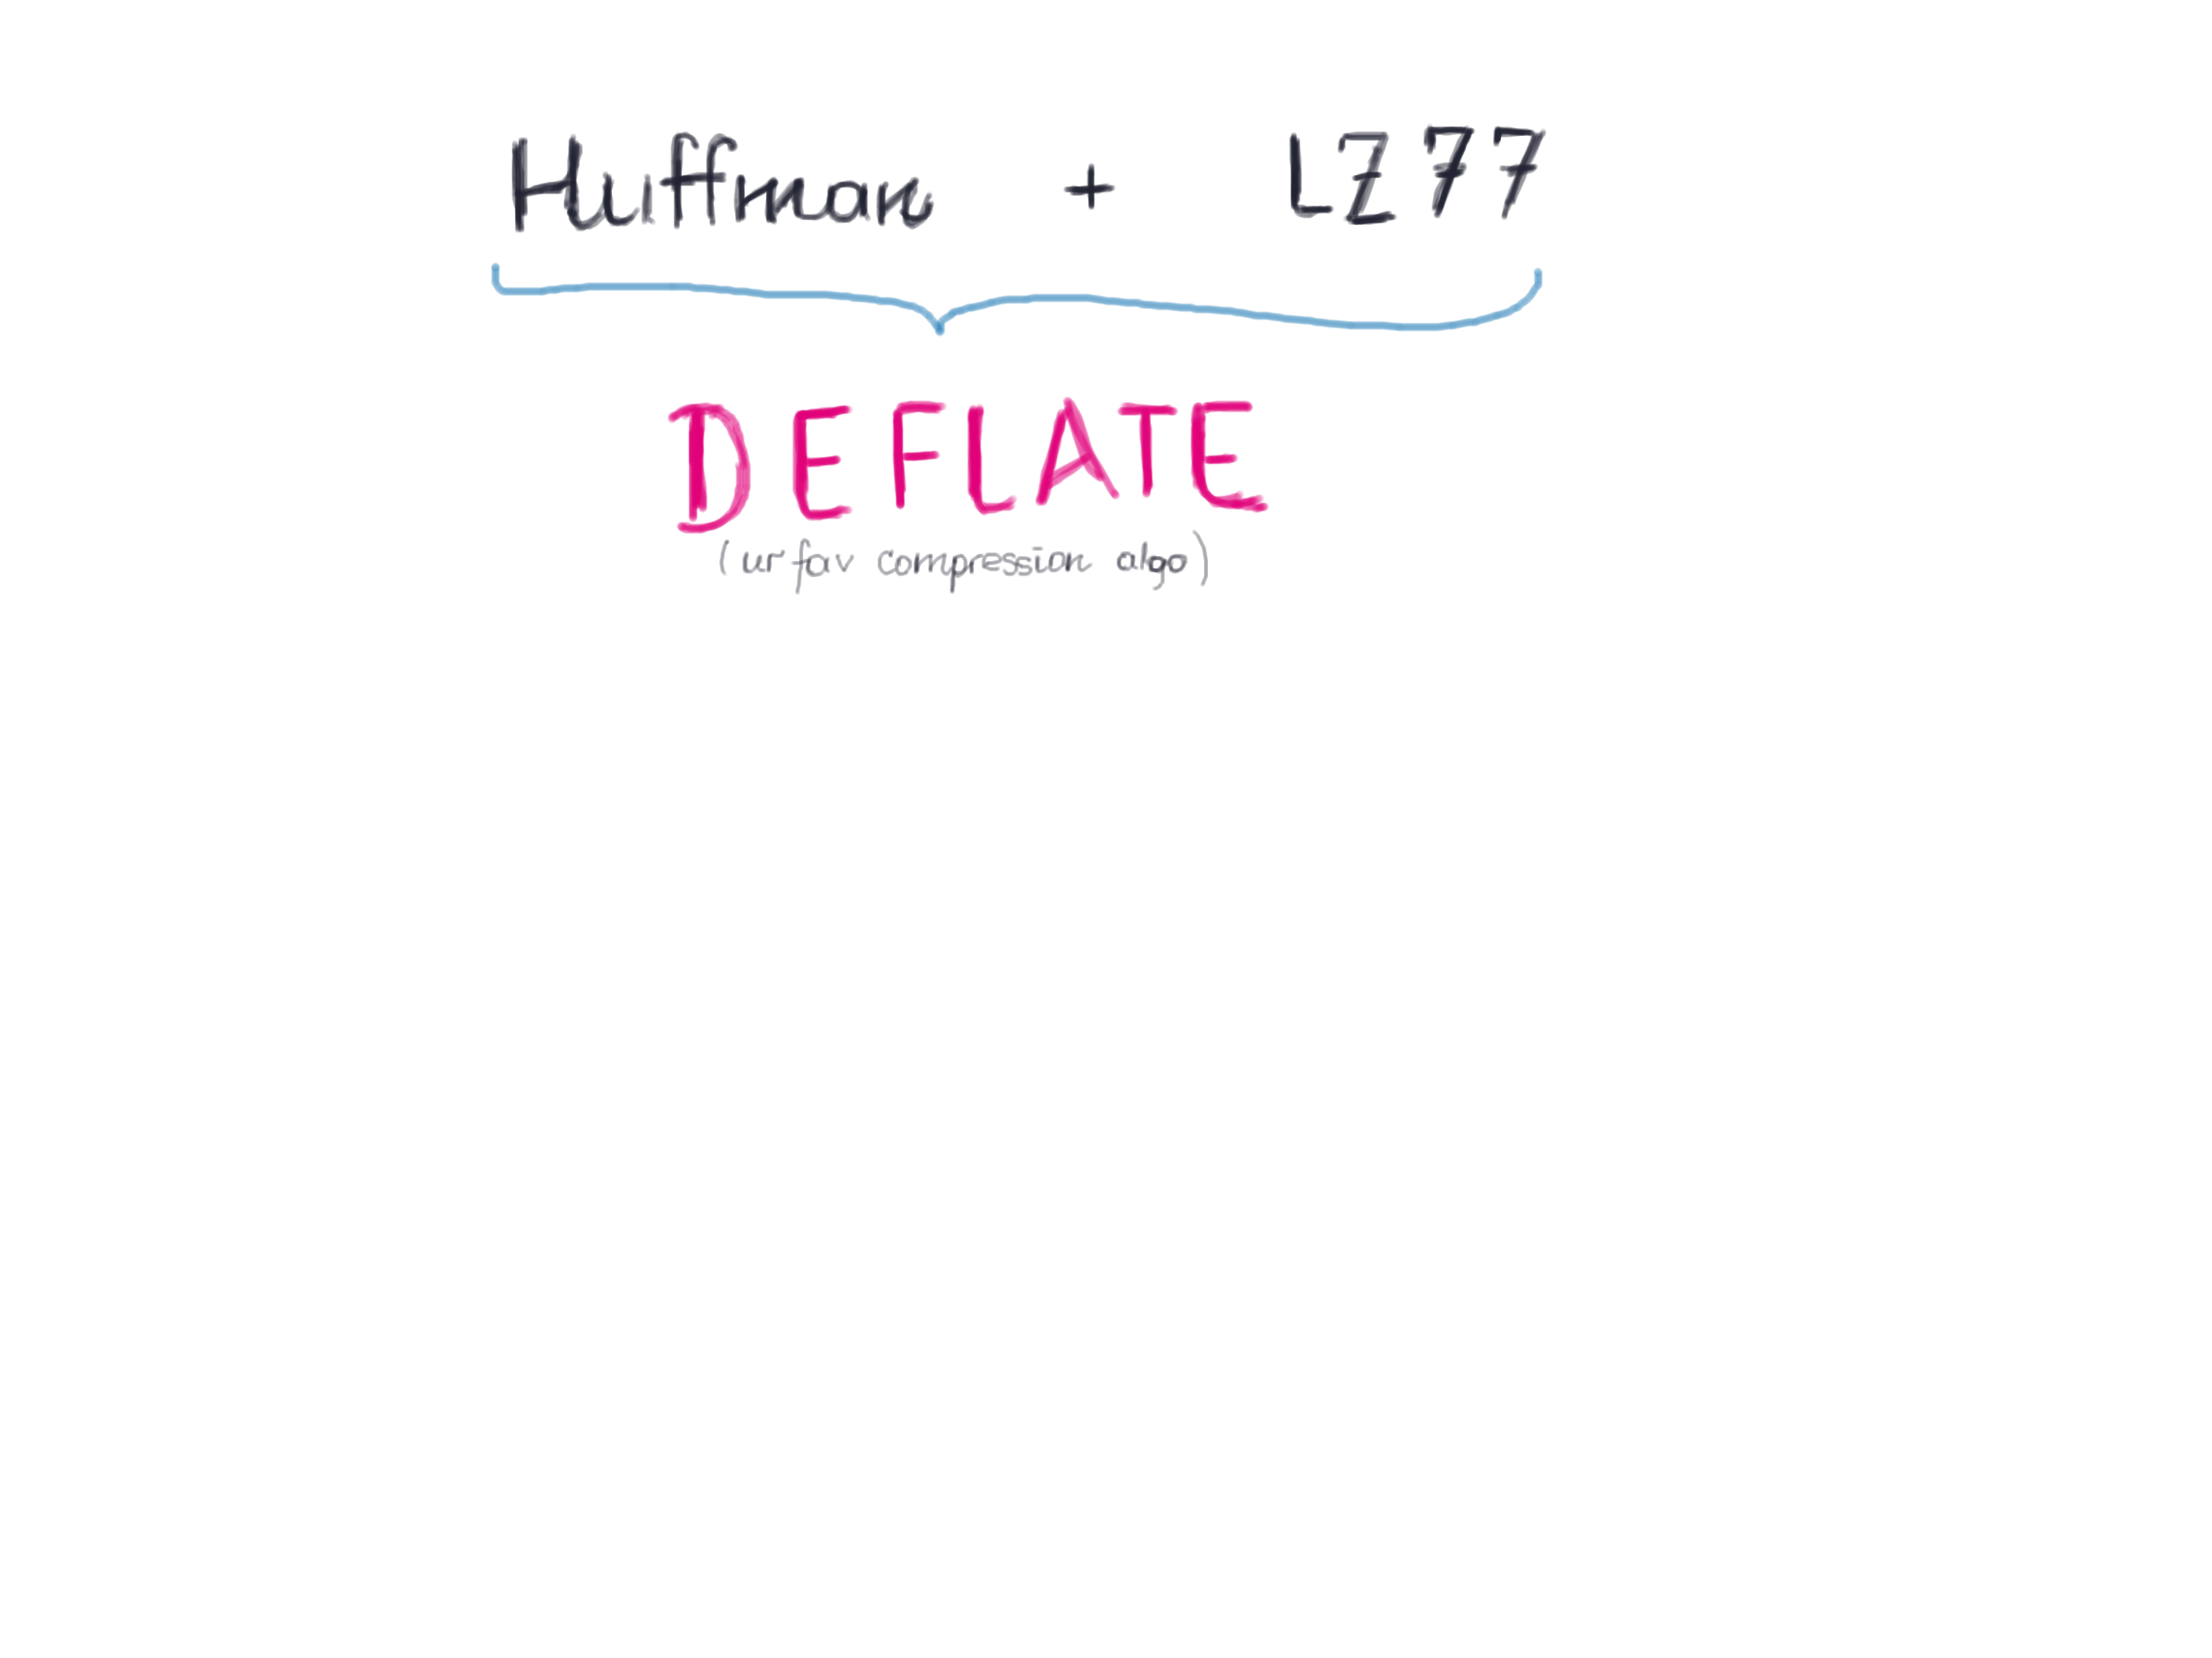 Huffman + LZ77
DEFLATE
(ur fav compression algo)